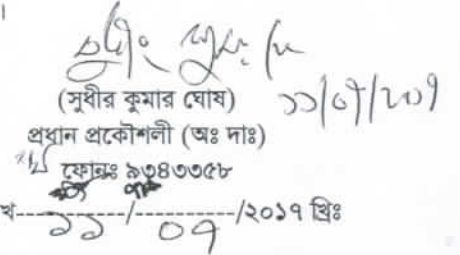 ।
(সুধীর কুমার ঘোষ) ১১/০৭/২০১৭
প্রধান প্রকৌশলী (অঃ দাঃ)
ফোনঃ ৯৩৪৩৩৫৮
খ-----------/-----------/২০১৭ খ্রিঃ
১১ ০৭